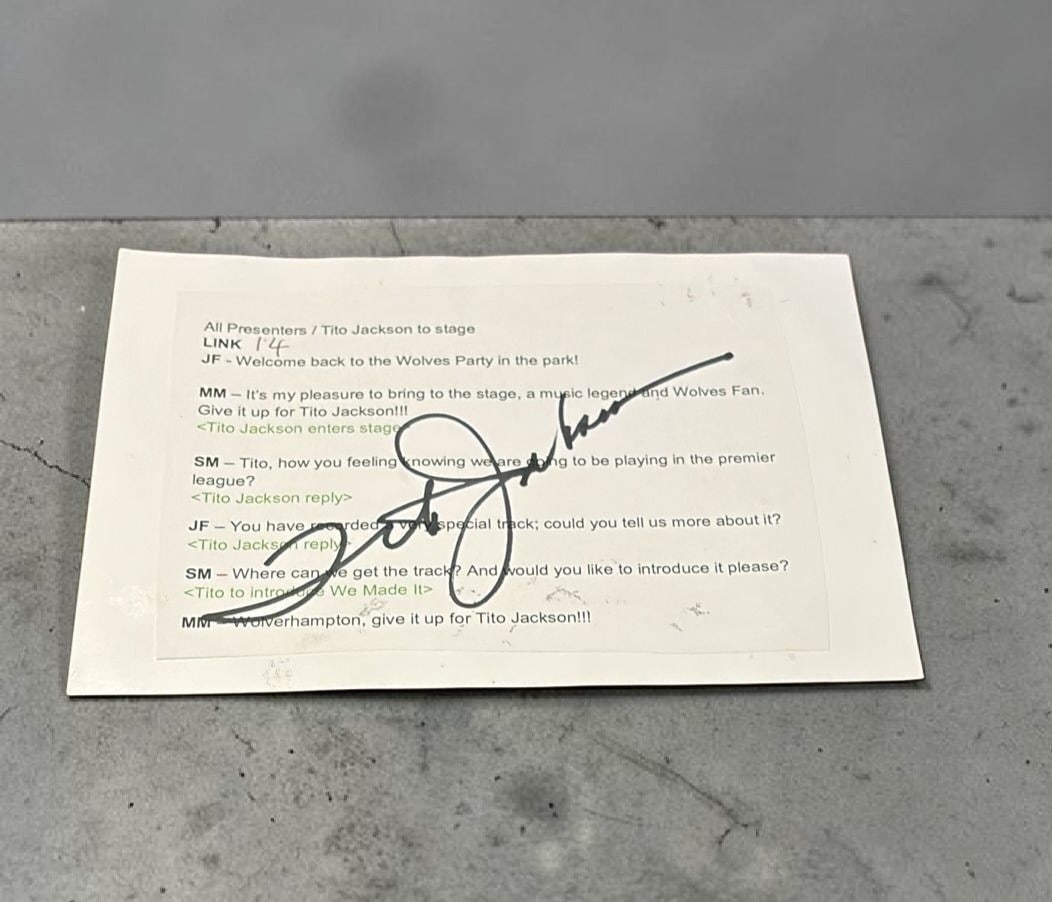 All Presenters / Tito Jackson to stage
LINK 14
JF - Welcome back to the Wolves Party in the park!
MM – It's my pleasure to bring to the stage, a music legend and Wolves Fan.
Give it up for Tito Jackson!!!
<Tito Jackson enters stage
SM – Tito, how you feeling knowing we are going to be playing in the premier
league?
<Tito Jackson reply>
JF – You have recorded a very special track; could you tell us more about it?
<Tito Jackson reply>
SM – Where can we get the track? And would you like to introduce it please?
<Tito to introduce We Made It>
MM – Wolverhampton, give it up for Tito Jackson!!!
Tito Jackson